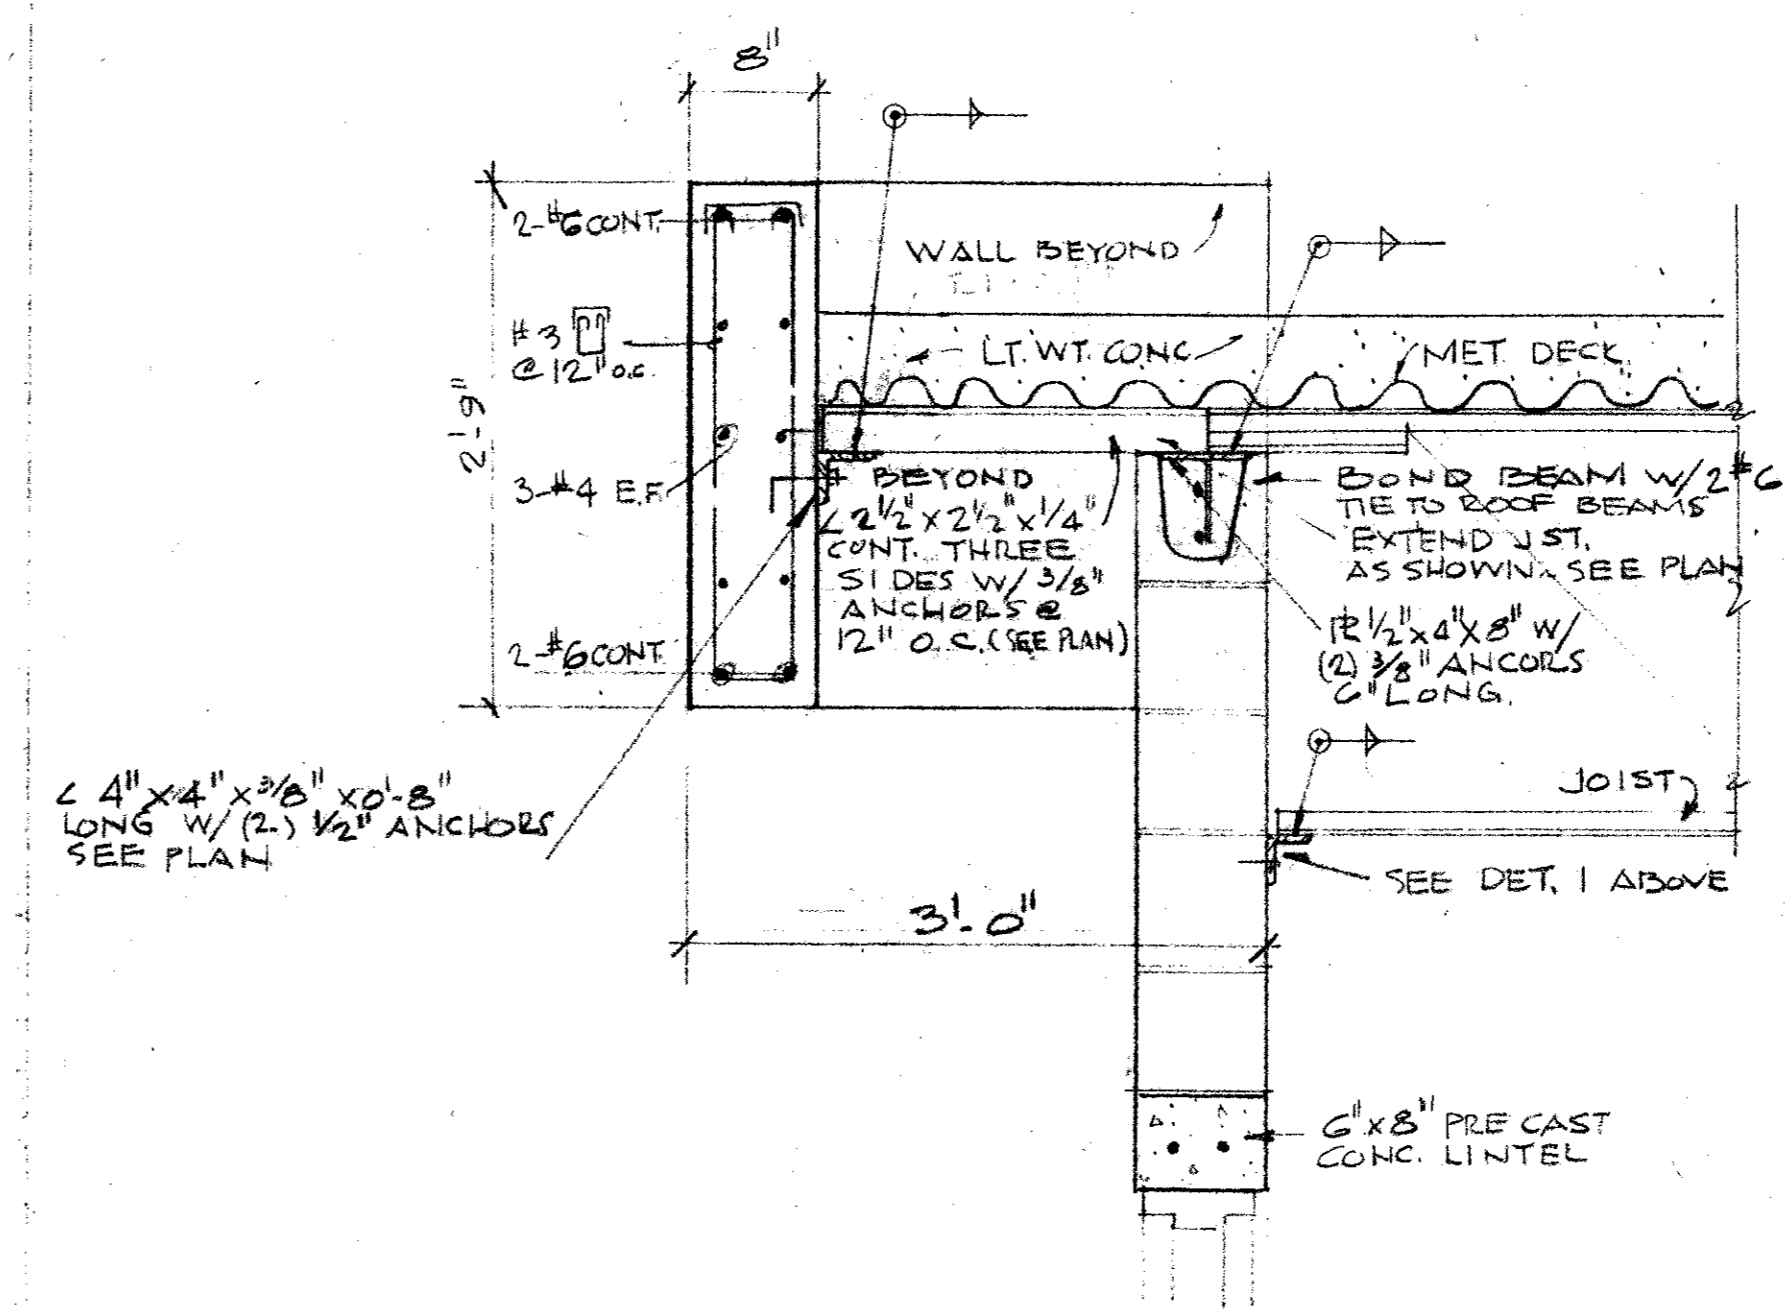 8"
2-#6 CONT.
WALL BEYOND
#3
@ 12" o.c.
LT. WT. CONC
MET. DECK
2'-9"
3-#4 E.F.
BEYOND
∠ 2 1/2" x 2 1/2" x 1/4"
CONT. THREE
SIDES W/ 3/8"
ANCHORS @
12" O.C. (SEE PLAN)
BOND BEAM W/ 2 #6
TIE TO ROOF BEAMS
EXTEND JST.
AS SHOWN. SEE PLAN
2-#6 CONT.
PL 1/2" x 4" x 8" W/
(2) 3/8" ANCORS
6" LONG.
∠ 4" x 4" x 3/8" x 0'-8"
LONG W/ (2) 1/2" ANCHORS
SEE PLAN
JOIST
SEE DET. 1 ABOVE
3'-0"
6" x 8" PRE CAST
CONC. LINTEL